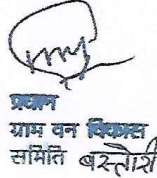 प्रधान
ग्राम वन विकास
समिति बस्तोरी